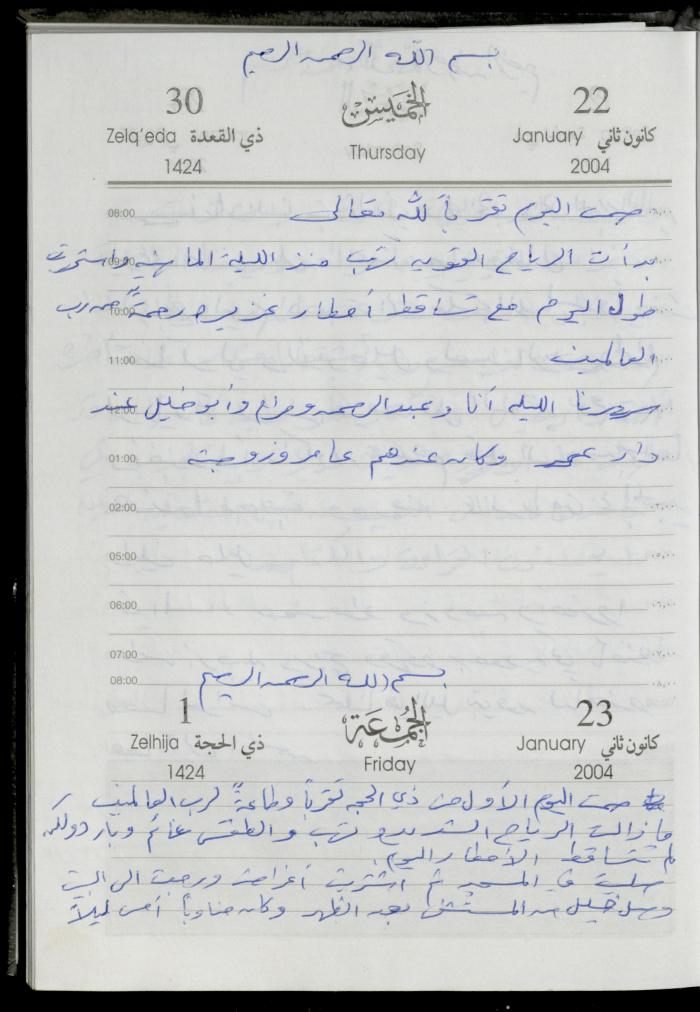 بسم الله الرحمن الرحيم
30 الخميس 22
Zelq'eda ذي القعدة Thursday January كانون ثاني
1424 2004
08:00 صمت اليوم تقرباً لله تعالى
09:00 بدأت الرياح القوية تهب منذ الليلة الماضية واستمرت
10:00 طول اليوم مع تساقط أمطار غزيره رحمةً من رب
11:00 العالمين
12:00 سهرنا الليله أنا وعبد الرحمن و وأبو خليل عند
01:00 دار وكان عندهم عامر وزوجته
02:00
05:00 ٠٥,٠٠
06:00 ٠٦,٠٠
07:00 ٠٧,٠٠
08:00 ٠٨,٠٠
بسم الله الرحمن الرحيم
1 الجمعة 23
Zelhija ذي الحجة Friday January كانون ثاني
1424 2004
صمت اليوم الأول من ذي الحجه تقرباً وطاعةً لرب العالمين
ما زالت الرياح الشديده تهب والطقس غائم وبارد ولكن
لم تتساقط الأمطار اليوم.
صليت في المسجد ثم اشتريت أغراض ورجعت الى البيت
وصل خليل من المستشفى بعد الظهر وكان مناوباً أمس ليلاً